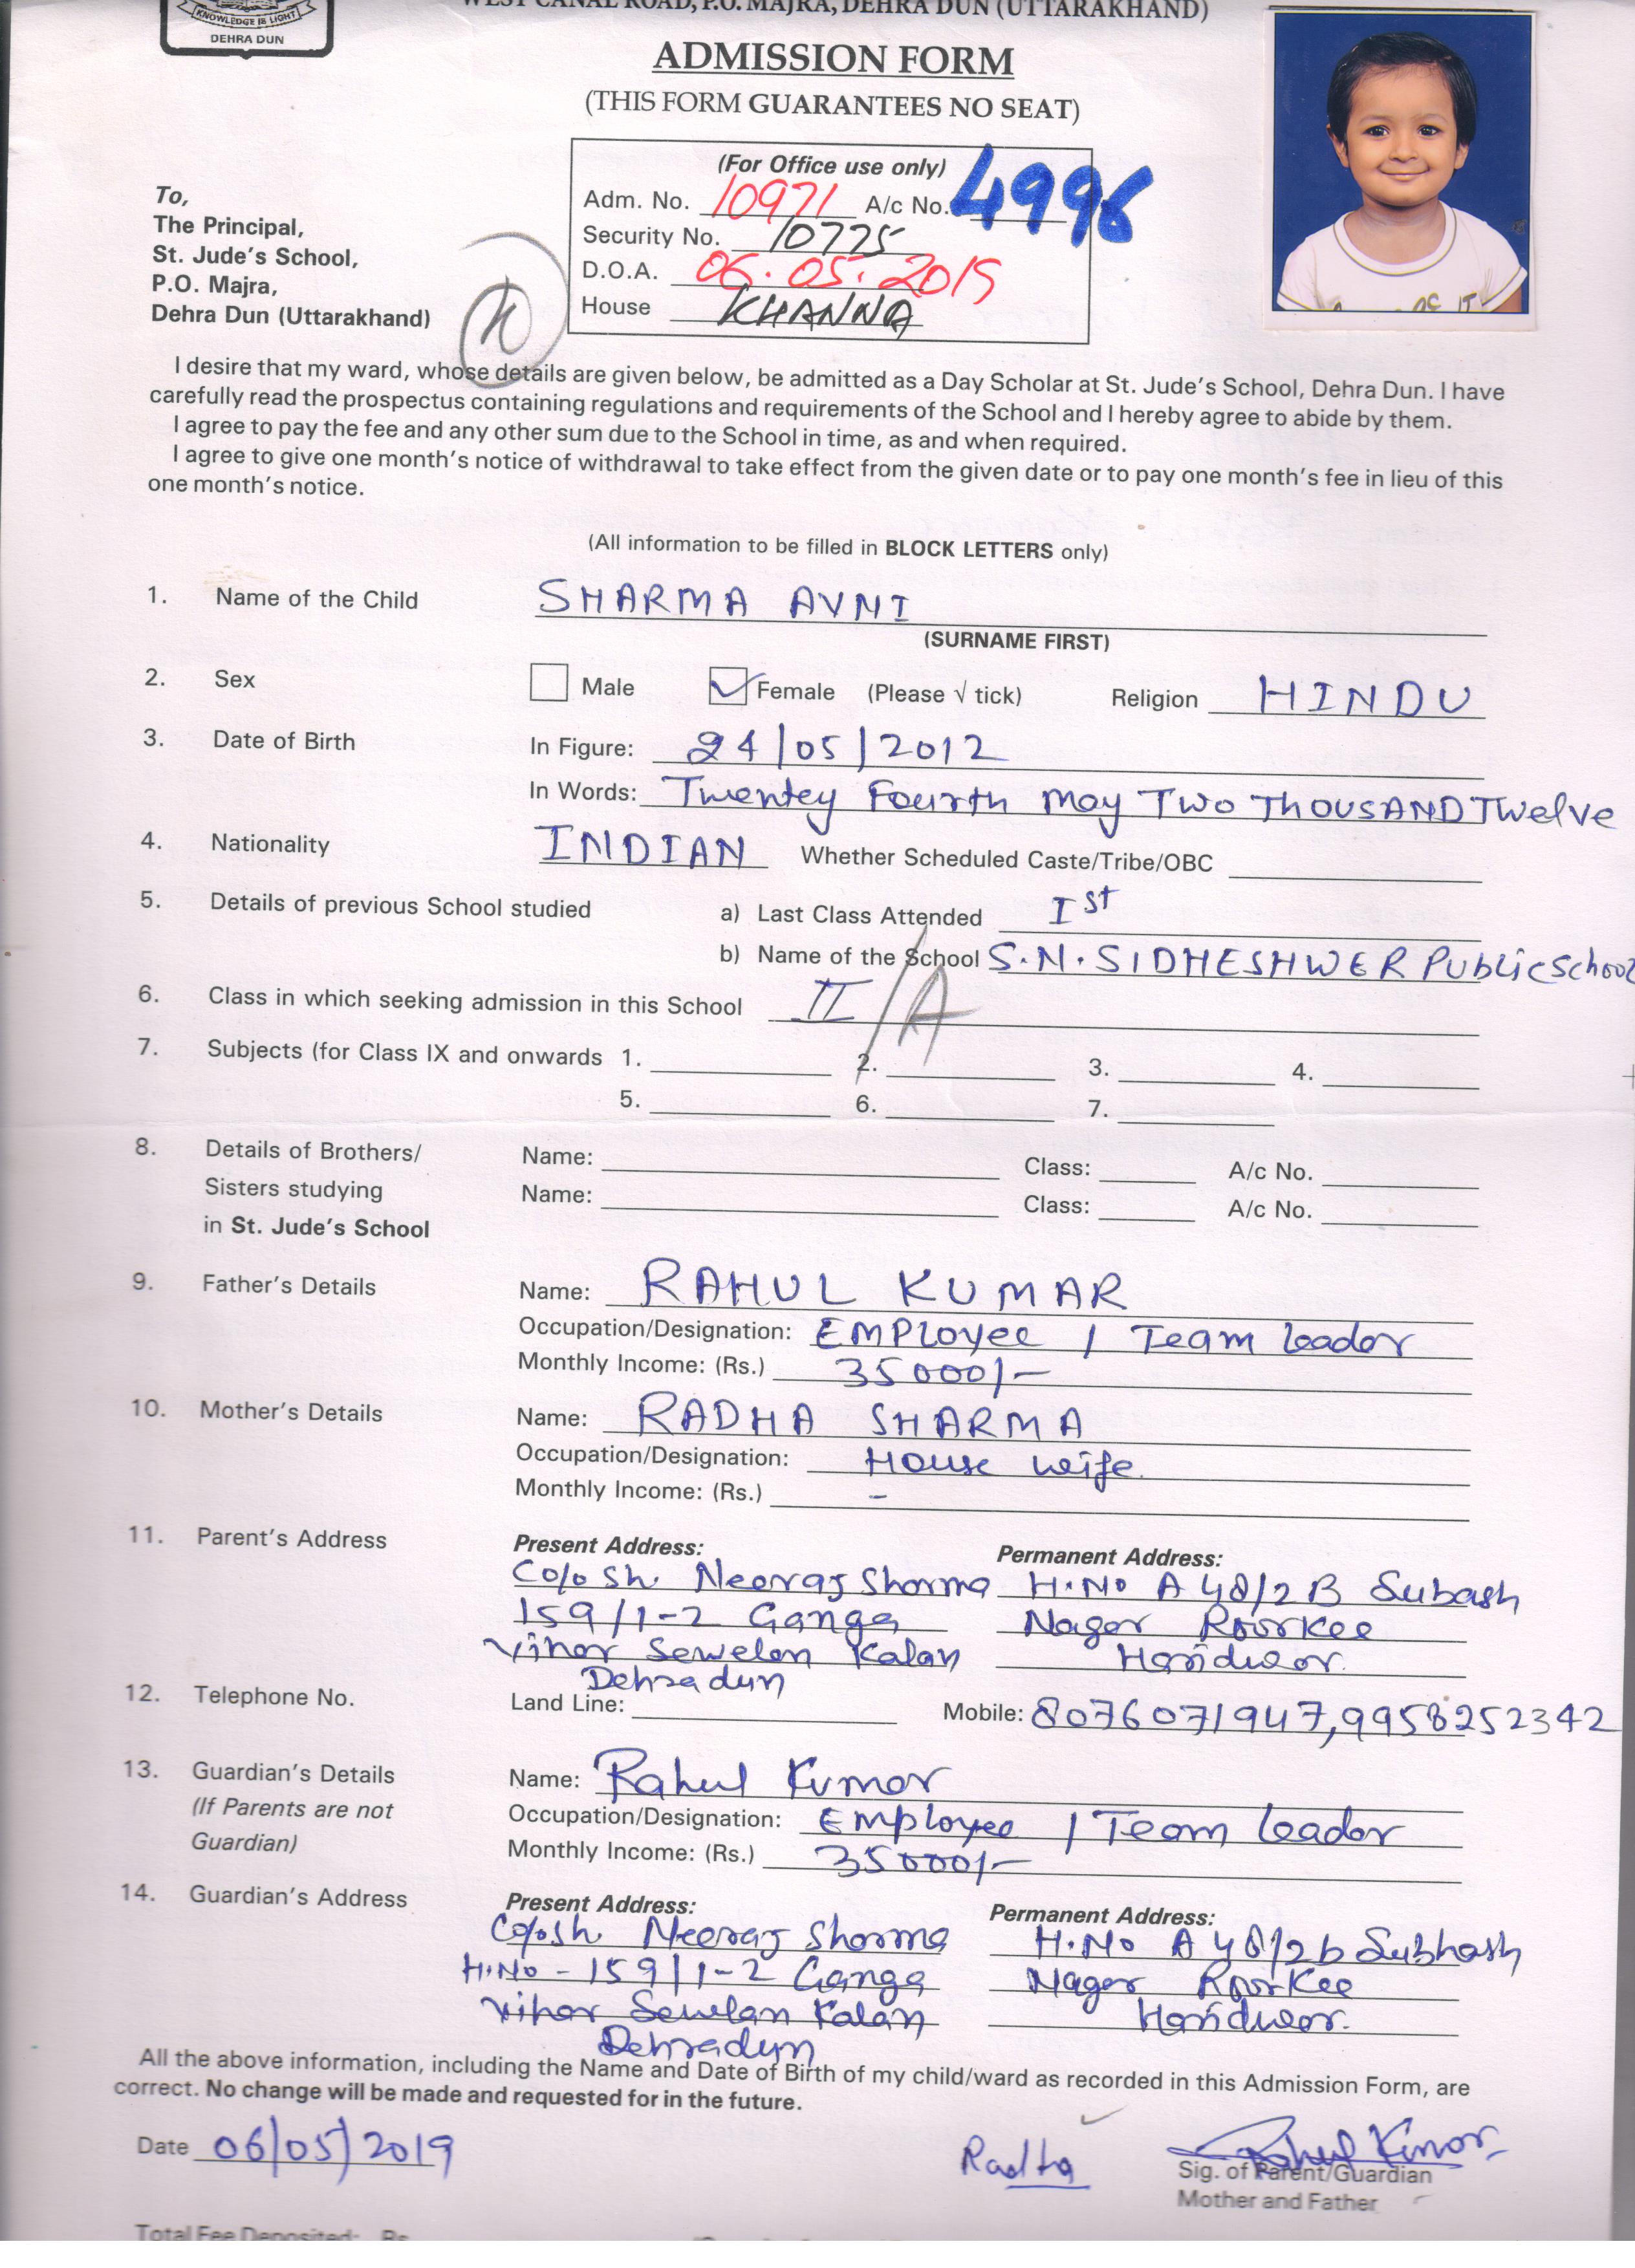 KNOWLEDGE IS LIGHT
DEHRA DUN
WEST CANAL ROAD, P.O. MAJRA, DEHRA DUN (UTTARAKHAND)
ADMISSION FORM
(THIS FORM GUARANTEES NO SEAT)
(For Office use only)
Adm. No. 10971 A/c No. 4996
Security No. 10775
D.O.A. 06.05.2019
House KHANNA
To,
The Principal,
St. Jude's School,
P.O. Majra,
Dehra Dun (Uttarakhand)
I desire that my ward, whose details are given below, be admitted as a Day Scholar at St. Jude's School, Dehra Dun. I have
carefully read the prospectus containing regulations and requirements of the School and I hereby agree to abide by them.
I agree to pay the fee and any other sum due to the School in time, as and when required.
I agree to give one month's notice of withdrawal to take effect from the given date or to pay one month's fee in lieu of this
one month's notice.
(All information to be filled in BLOCK LETTERS only)
1. Name of the Child SHARMA AVNI
(SURNAME FIRST)
2. Sex Male Female (Please √ tick) Religion HINDU
3. Date of Birth In Figure: 24/05/2012
In Words: Twentey Fourth May Two THOUSAND Twelve
4. Nationality INDIAN Whether Scheduled Caste/Tribe/OBC
5. Details of previous School studied a) Last Class Attended Ist
b) Name of the School S.N. SIDHESHWER Public School
6. Class in which seeking admission in this School II/A
7. Subjects (for Class IX and onwards 1. 2. 3. 4.
5. 6. 7.
8. Details of Brothers/ Name: Class: A/c No.
Sisters studying Name: Class: A/c No.
in St. Jude's School
9. Father's Details Name: RAHUL KUMAR
Occupation/Designation: EMPloyee / Team leader
Monthly Income: (Rs.) 35000/-
10. Mother's Details Name: RADHA SHARMA
Occupation/Designation: House wife
Monthly Income: (Rs.) -
11. Parent's Address Present Address: Permanent Address:
C/o Sh. Neeraj Sharma H.No A 48/2 B Subash
159/1-2 Ganga Nagar Roorkee
Vihar Sewelan Kalan Haridwar.
Dehradun
12. Telephone No. Land Line: Mobile: 8076071947, 9958252342
13. Guardian's Details Name: Rahul Kumar
(If Parents are not Occupation/Designation: Employee / Team leader
Guardian) Monthly Income: (Rs.) 35000/-
14. Guardian's Address Present Address: Permanent Address:
C/o Sh. Neeraj Sharma H.No A 48/2b Subhash
H.No - 159/1-2 Ganga Nagar Roorkee
Vihar Sewelan Kalan Haridwar.
Dehradun
All the above information, including the Name and Date of Birth of my child/ward as recorded in this Admission Form, are
correct. No change will be made and requested for in the future.
Date 06/05/2019 Radha Rahul Kumar
Sig. of Parent/Guardian
Mother and Father
Total Fee Deposited: Rs